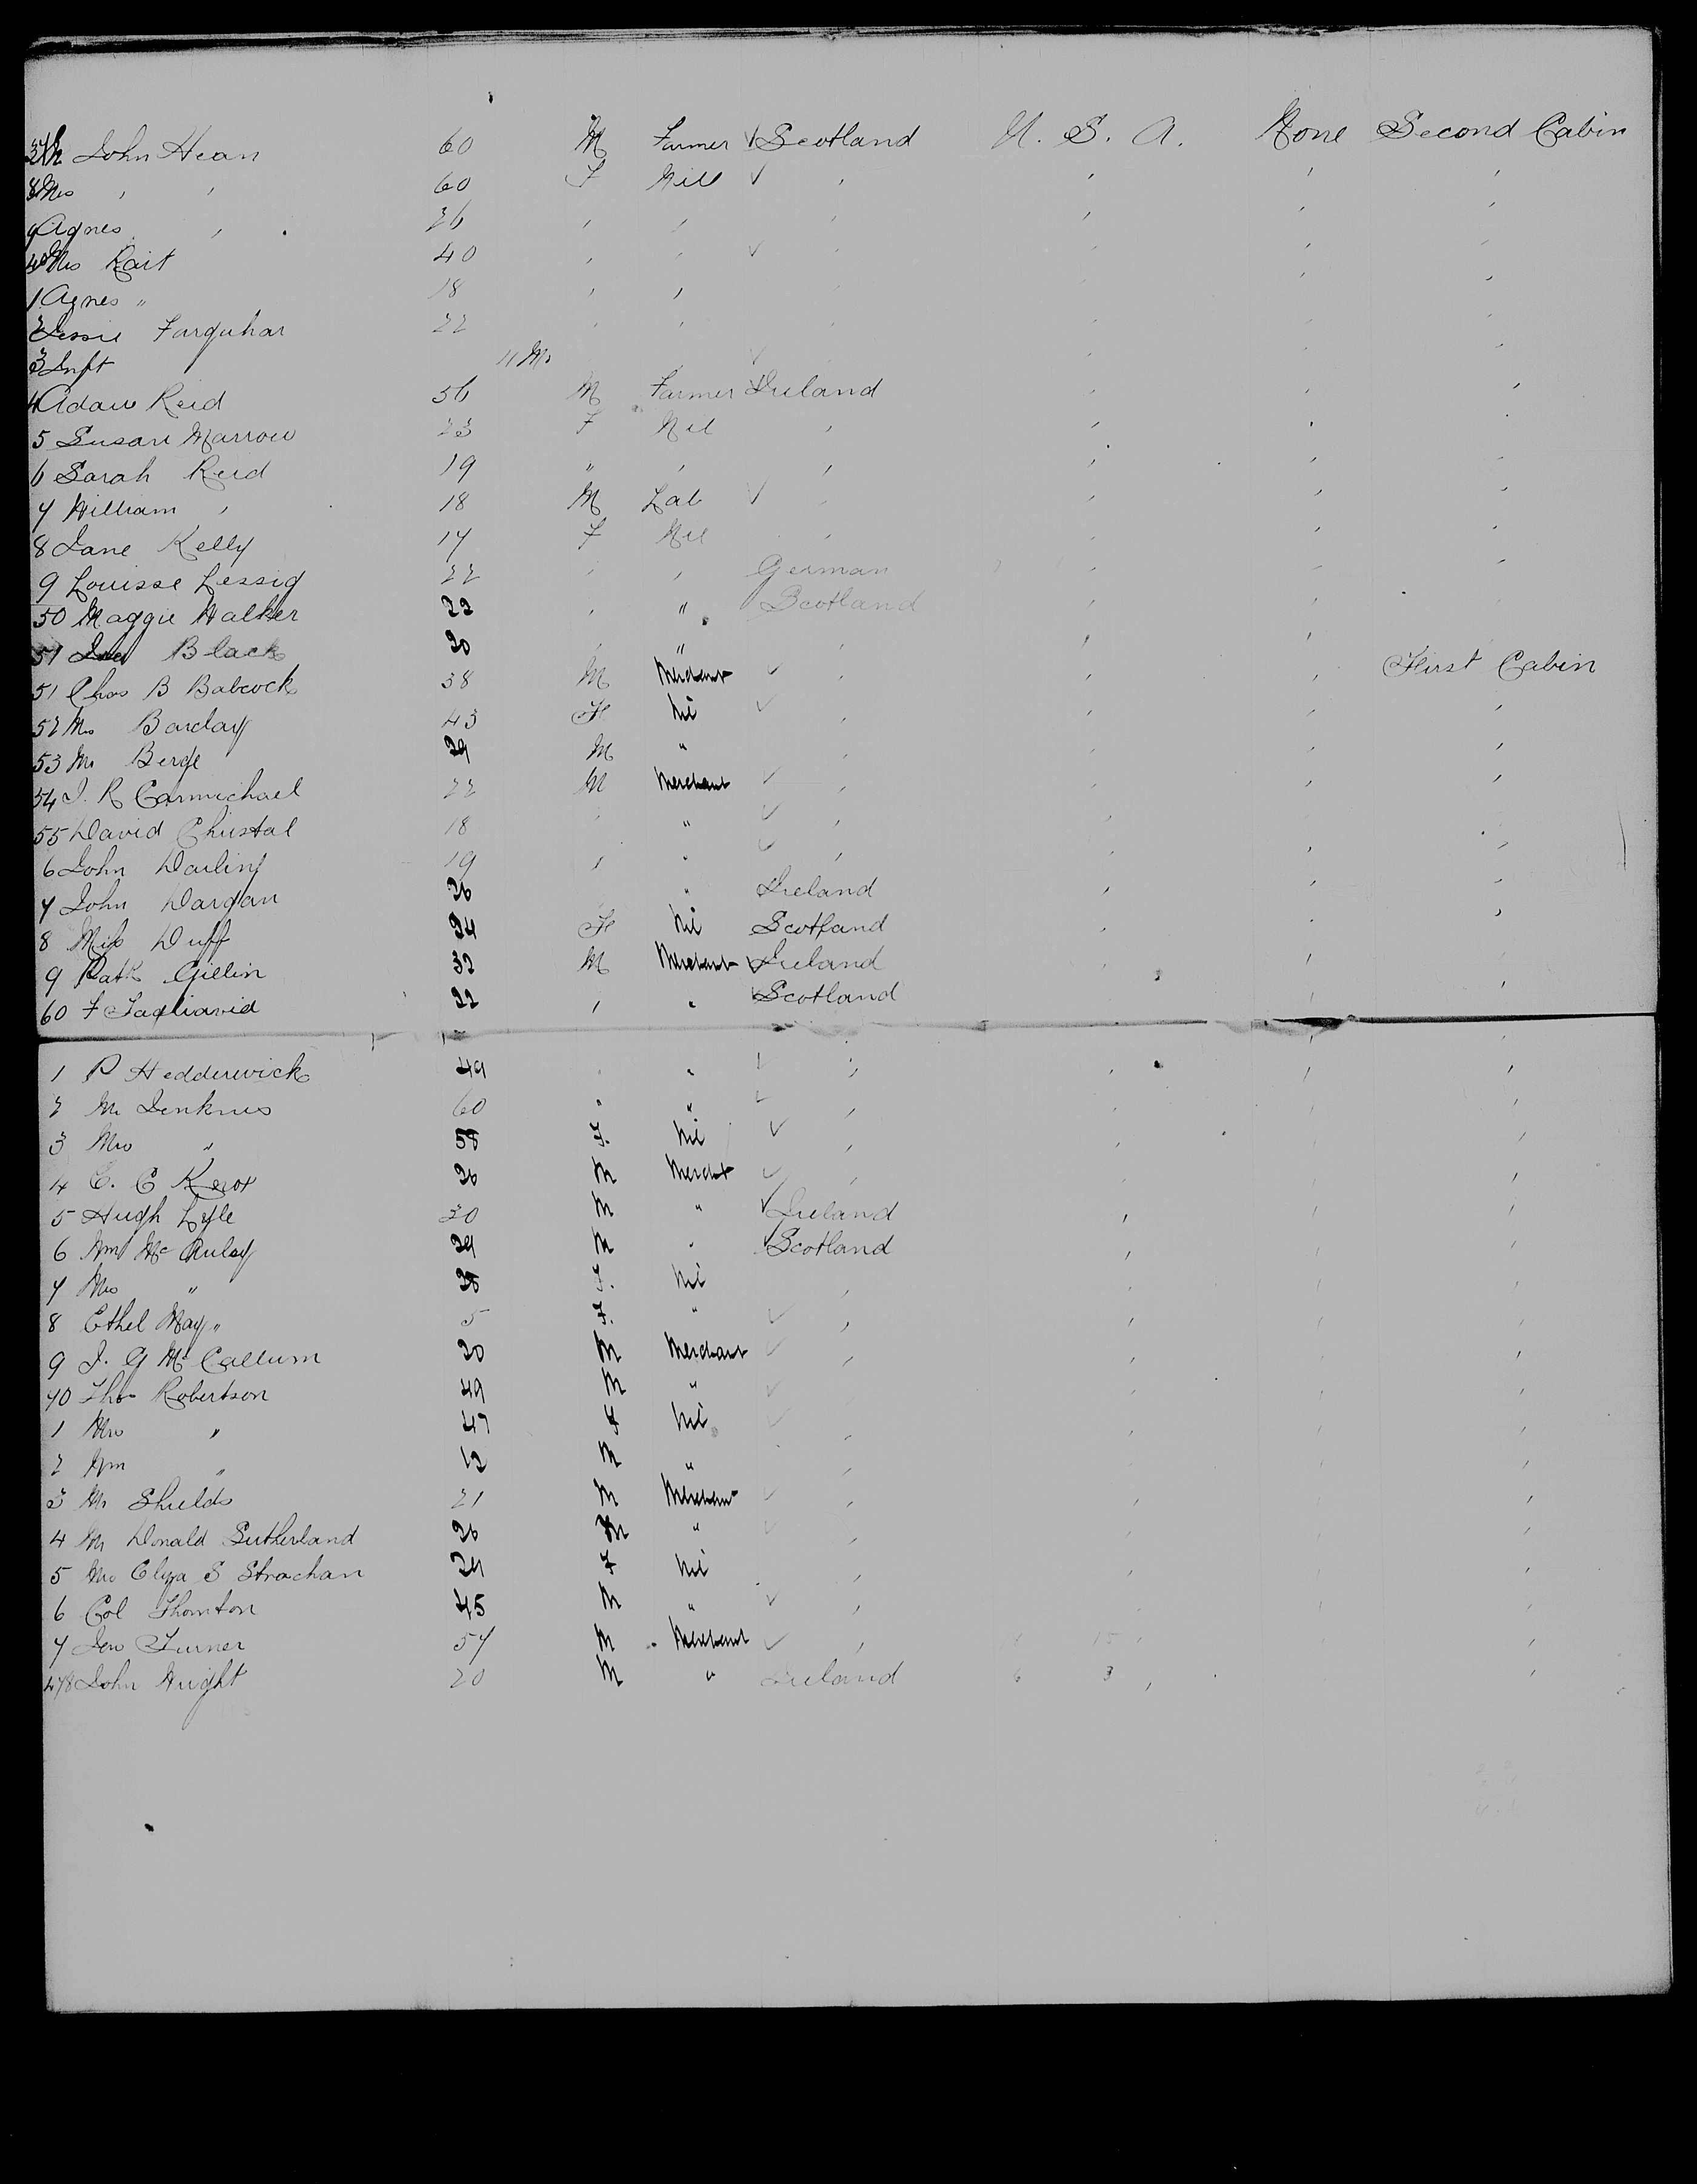 John Hean 60 M Farmer ✓ Scotland U. S. A. None Second Cabin
8 Mrs " " 60 F Nill ✓ " " " "
9 Agnes " 26 " " " " " "
40 Mrs Rait 40 " " ✓ " " " "
1 Agnes " 18 " " " " " "
2 Jessie Farquhar 22 " " " " " "
3 Inft 11 Ms ✓ " " " "
4 Adam Reid 56 M Farmer Ireland " " "
5 Susan Marrow 23 F Nil " " " "
6 Sarah Reid 19 " " " " " "
7 William " 18 M Lab ✓ " " " "
8 Jane Kelly 17 F Nil " " " "
9 Louisse Lessig 22 " " German " " "
50 Maggie Walker 22 " " Scotland " " "
51 Black 20 " " " " "
51 Chas B Babcock 38 M Merchant ✓ " " " First Cabin
52 Mrs Barclay 43 F Nil ✓ " " " "
53 Mr Berge 29 M " " " " "
54 J. R Carmichael 22 M Merchant ✓ " " " "
55 David Christal 18 " " ✓ " " " "
6 John Darling 19 " " ✓ " " " "
7 John Dargan 26 " Ireland " " "
8 Miss Duff 24 F Nil Scotland " " "
9 Patk Gillin 32 M Merchant ✓ Ireland " " "
60 F Tagliavid 22 " " ✓ Scotland " "
1 P Hedderwick 49 " " ✓ " " " "
2 Mr Jenkins 60 " " ✓ " " " "
3 Mrs " 58 F. Nil ✓ " " " "
4 C. C 26 M Merchat ✓ " " " "
5 Hugh Lyle 30 M " ✓ Ireland " " "
6 Wm Mc Aulay 29 M " ✓ Scotland " " "
7 Mrs " 28 F. Nil " " " "
8 Ethel May " 5 F. " ✓ " " " "
9 J. G Mc Callum 20 M Merchant ✓ " " " "
70 Thos Robertson 49 M " ✓ " " "
1 Mrs " 47 F Nil ✓ " " " "
2 Wm " 12 M " " " " "
3 Mr Shields 21 M Merchant ✓ " " " "
4 Mr Donald Sutherland 26 M " ✓ " " " "
5 Mrs Eliza S Strachan 29 F Nil " " " "
6 Col Thornton 45 M " ✓ " " "
7 Turner 57 M Merchant ✓ " 15 " "
478 John Wright 20 M " Ireland 6 3 " "